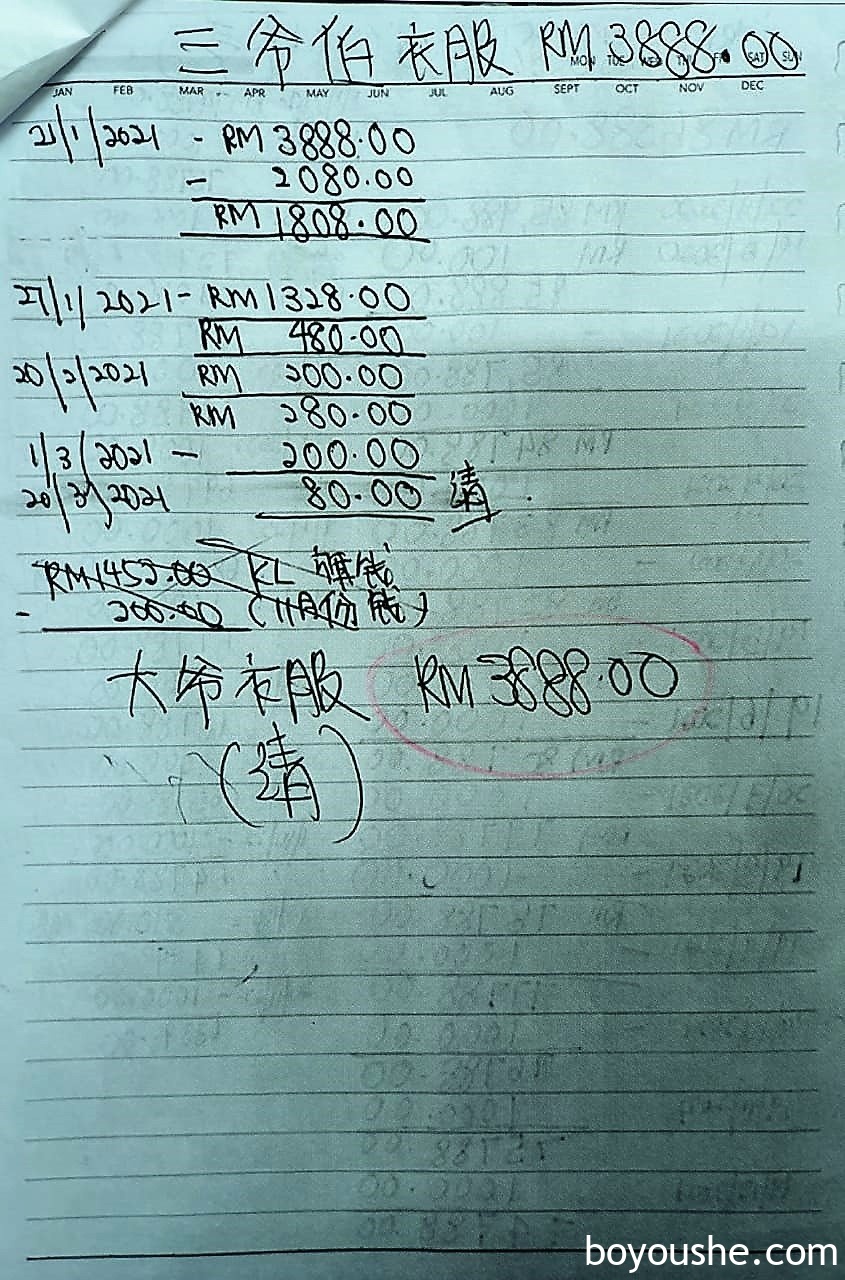 三爷伯衣服 RM 3888.00
MON TUE WED THU FRI SAT SUN
JAN FEB MAR APR MAY JUN JUL AUG SEPT OCT NOV DEC
21/1/2021 - RM 3888.00
- 2080.00
RM 1808.00
27/1/2021 - RM 1328.00
RM 480.00
20/2/2021 RM 200.00
RM 280.00
1/3/2021 - 200.00
20/3/2021 80.00 清.
RM1452.00 KL 钱
- 200.00 (11月份钱)
大爷衣服 RM 3888.00
(清)
boyoushe.com